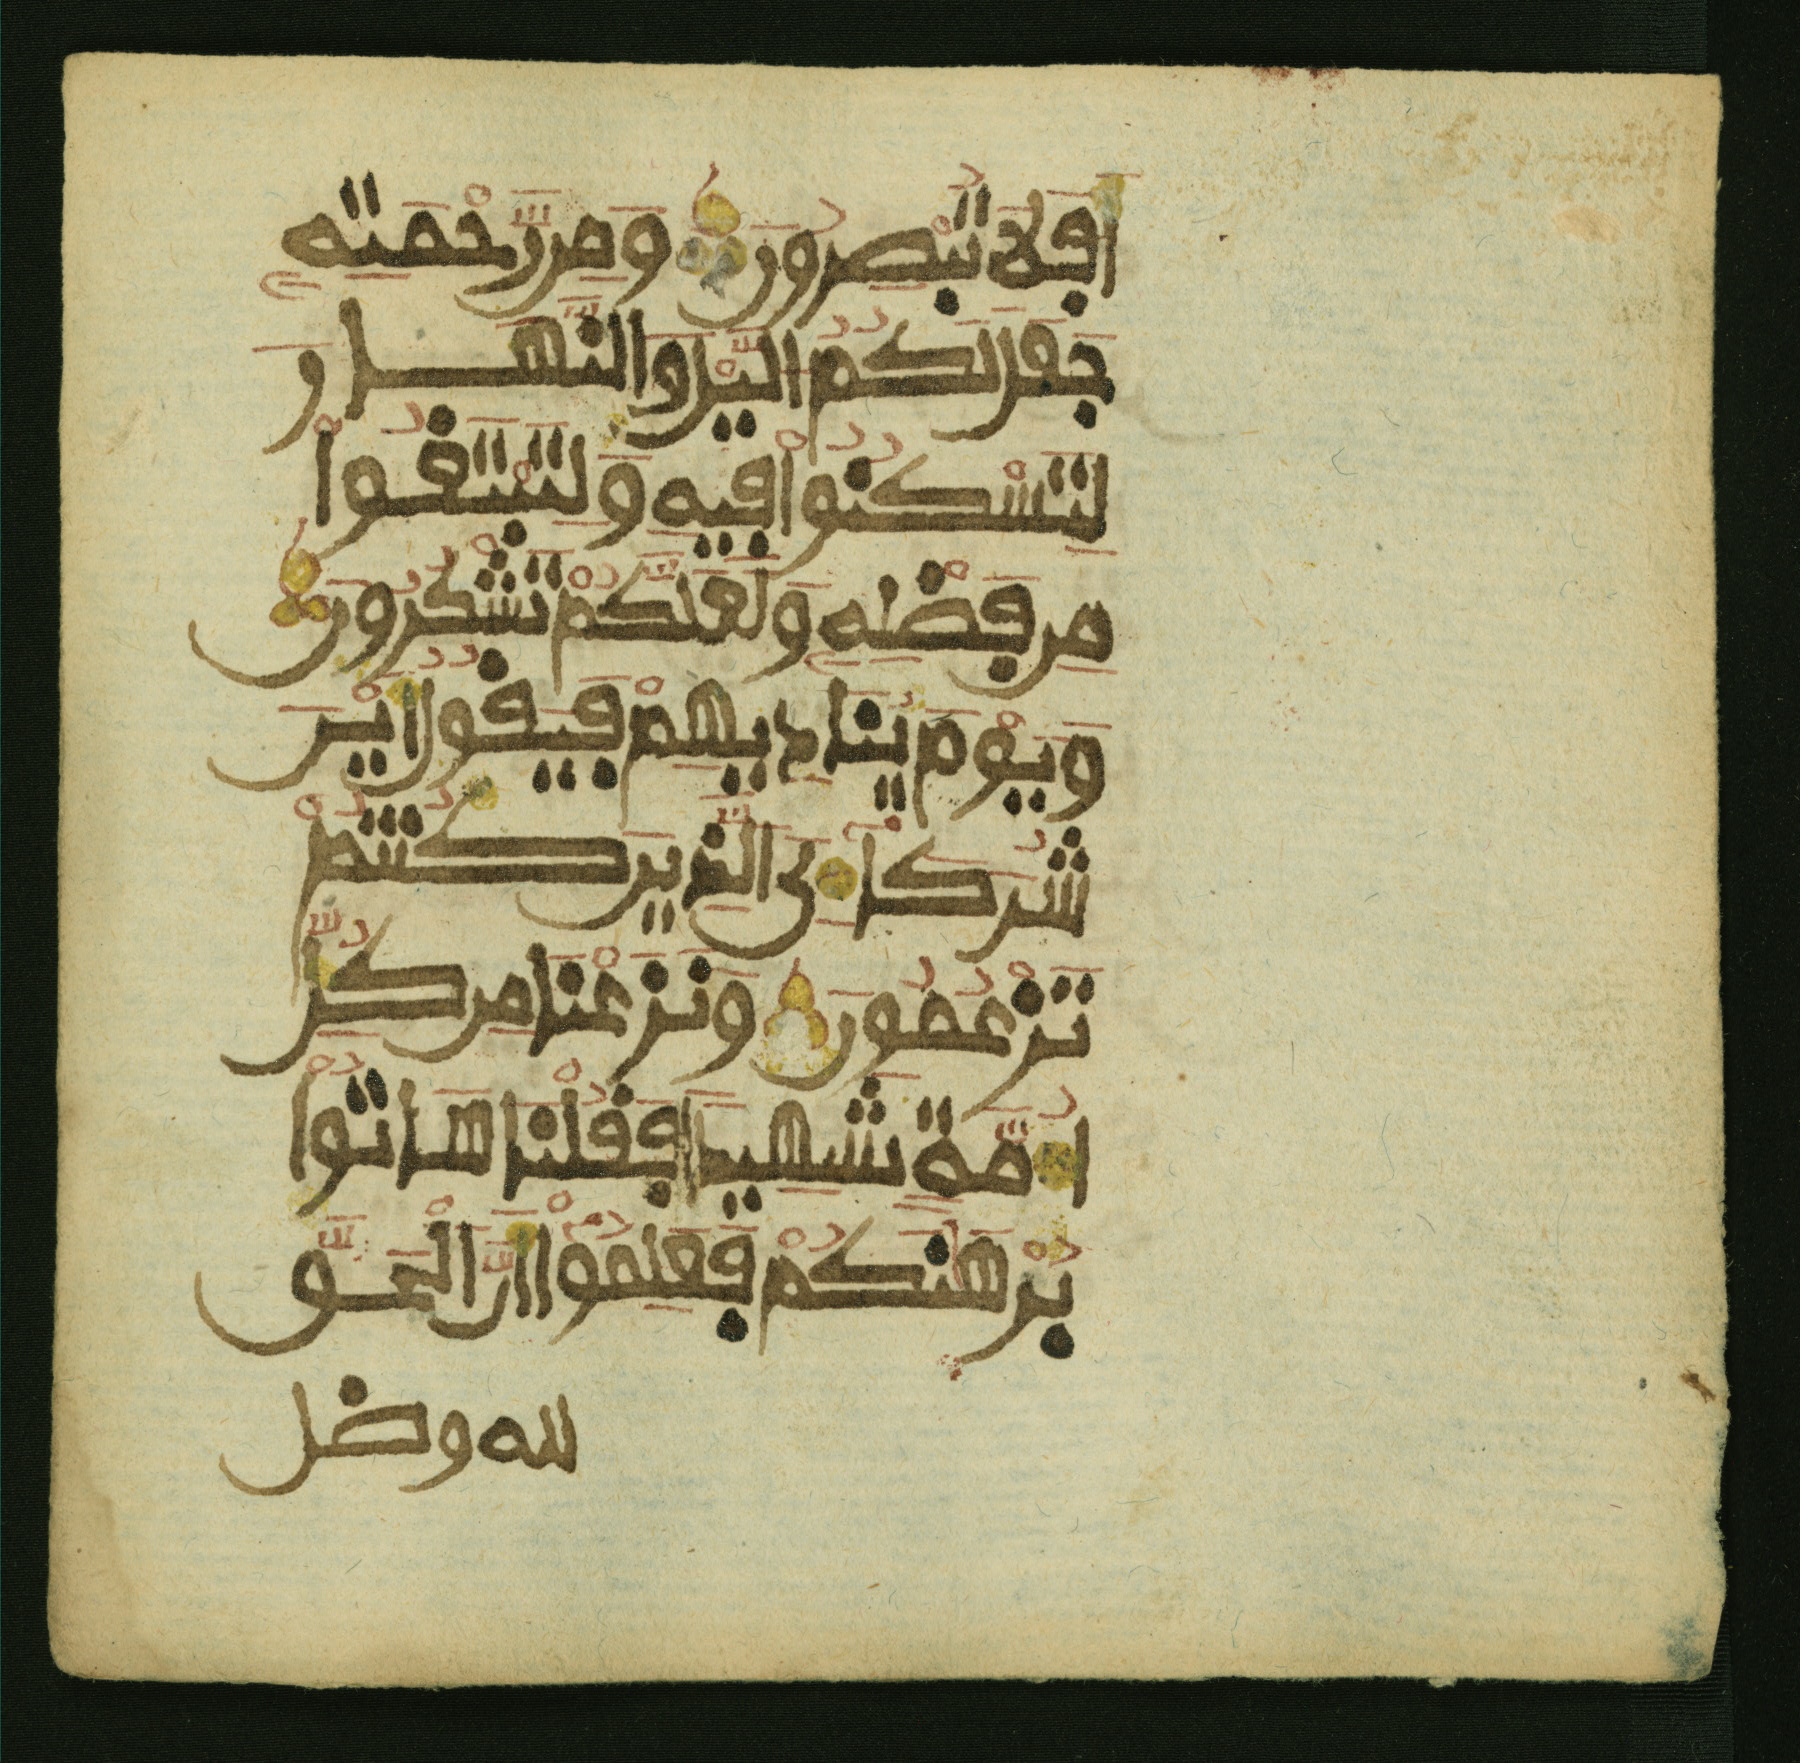 اَفَلَا تُبْصِرُونَ وَمِن رَّحْمَتِهِ
جَعَلَ لَكُمُ اليْلَ وَالنَّهَارَ
لِتَسْكُنُواْ فِيهِ وَلِتَبْتَغُواْ
مِن فَضْلِهِ وَلَعَلَّكُمْ تَشْكُرُونَ
وَيَوْمَ يُنَادِيهِمْ فَيَقُولُ أَيْنَ
شُرَكَآءِيَ الذِينَ كُنتُمْ
تَزْعُمُونَ وَنَزَعْنَا مِن كُلِّ
أُمَّةٍ شَهِيداً فَقُلْنَا هَاتُواْ
بُرْهَٰنَكُمْ فَعَلِمُواْ أَنَّ الْحَقَّ
لله وضل